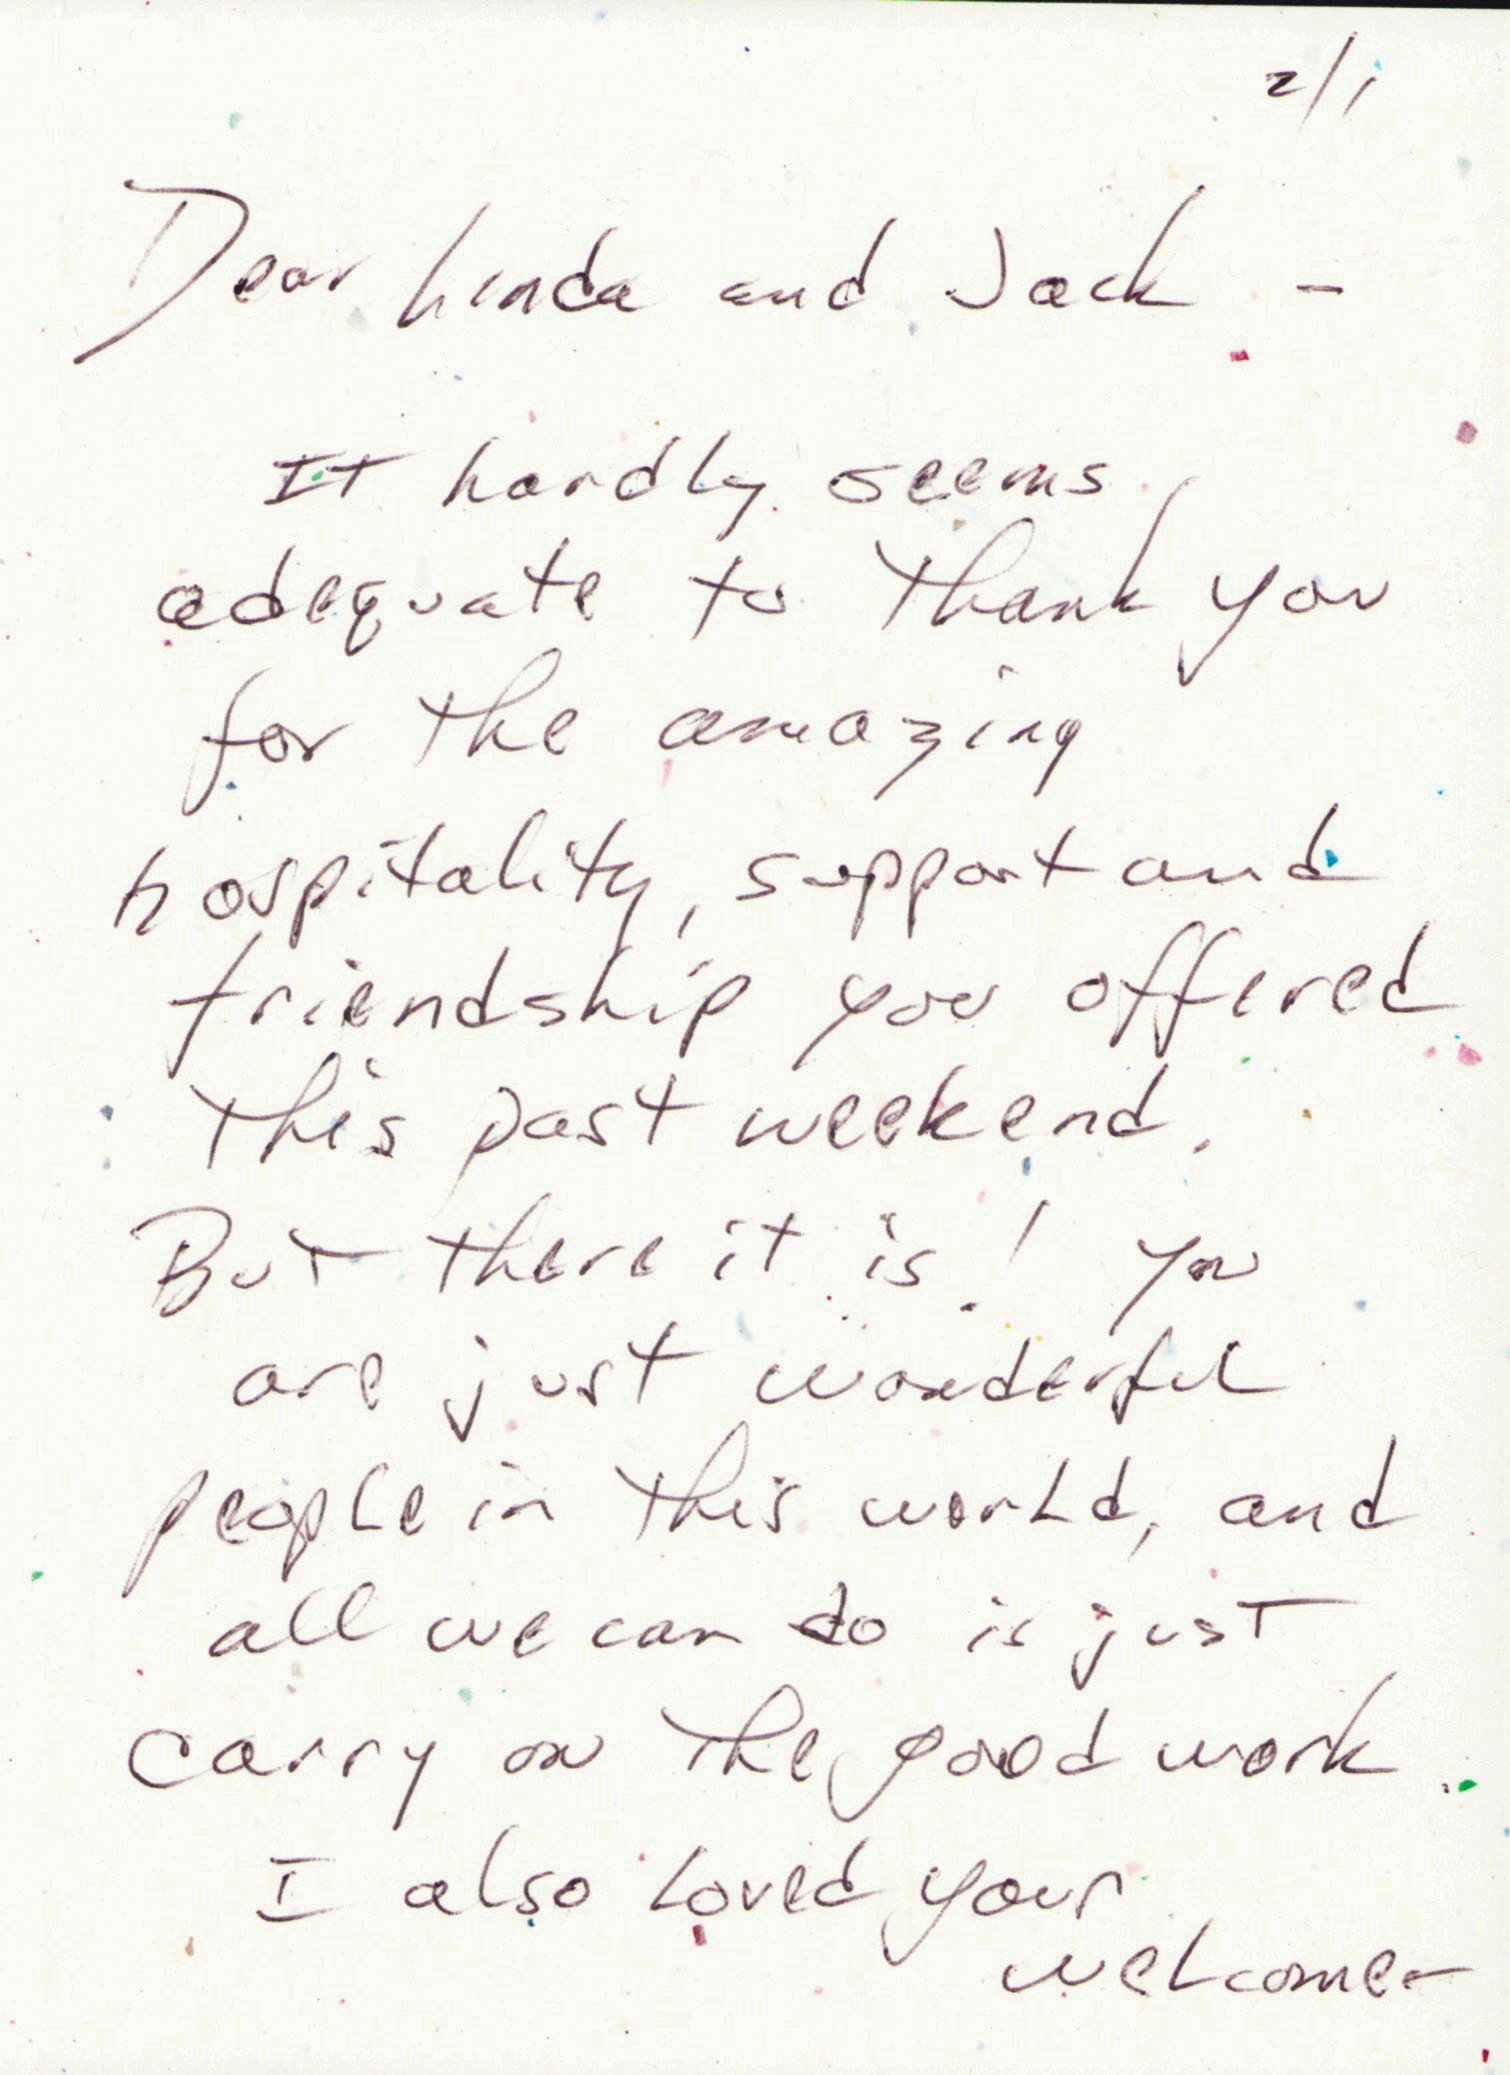 2/1
Dear Linda and Jack -
It hardly seems
adequate to thank you
for the amazing
hospitality, support and
friendship you offered
this past weekend.
But there it is! You
are just wonderful
people in this world, and
all we can do is just
carry on the good work.
I also loved your
welcome-